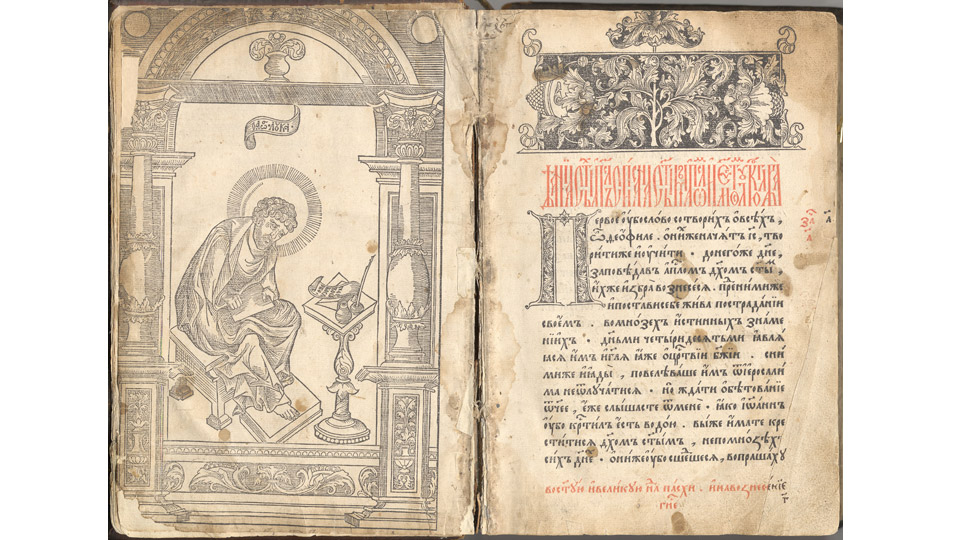 лꙋка
Первое ᲂу҆бо слово сотворихъ ѡ҆ всѣхъ ,
ѽ ѳеѡ҆филе . ѡ҆ ниженачѧтъ і҃с , тво
рити же и҆ ᲂу҆чити · до него же дн҃е ,
заповѣдавъ а҆пⷭ҇лом дх҃омъ ст҃ы ,
и҆хже и҆ꙁбра воꙁнесесѧ . пред ними же
и҆ постави себе жива по страданїи
своемъ . во мноꙁехъ и҆стинныхъ ꙁнаме
нїи҆хъ · дн҃ьми четыридесѧтьми ꙗ҆влѧꙗ
ꙗсѧ и҆мъ и҆ гл҃ѧ ꙗ҆же ѡ҆ црⷭ҇твїи бж҃їи . сни
миже и҆ ꙗ҆ды , повелѣваше и҆мъ ѿ і҆ерⷭ҇сали
ма не ѿлꙋчатисѧ · но ждати ѡ҆бѣтованїе
ѿч҃ее , є҆же слышасте ѿ мене · ꙗ҆ко і҆ѡ҆аннъ
ᲂу҆бо крⷭ҇тилъ є҆сть водою . вы же и҆мате кре
ститисѧ дх҃омъ ст҃ымъ , не по мноꙁѣхъ
сихъ дн҃е · ѡ҆ниже ᲂу҆бо сшешесѧ , вопрашахꙋ
во ст҃ꙋю и҆ великꙋю нлⷧ҇ пасхи . и҆ на воꙁнесенїе
гн҃е